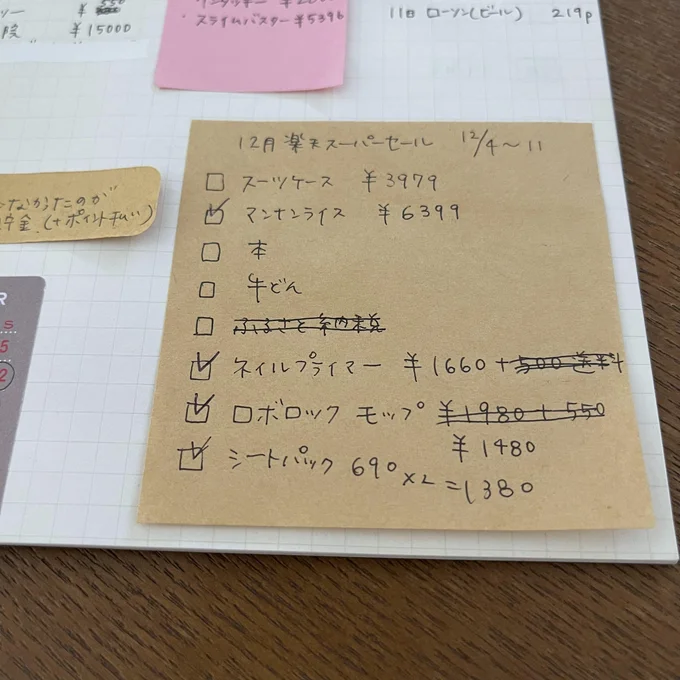 ー ¥
院 ¥15000
スライムバスター ¥5396
11日 ローソン(ビール) 219p
なかったのが
貯金.(+ポイント払い)
R
S
5
2
12月 楽天スーパーセール 12/4〜11
スーツケース ¥3979
マンナンライス ¥6399
本
牛どん
ふるさと納税
ネイルプライマー ¥1660+500送料
ロボロック モップ ¥1980+550
¥1480
シートパック 690×2=1380